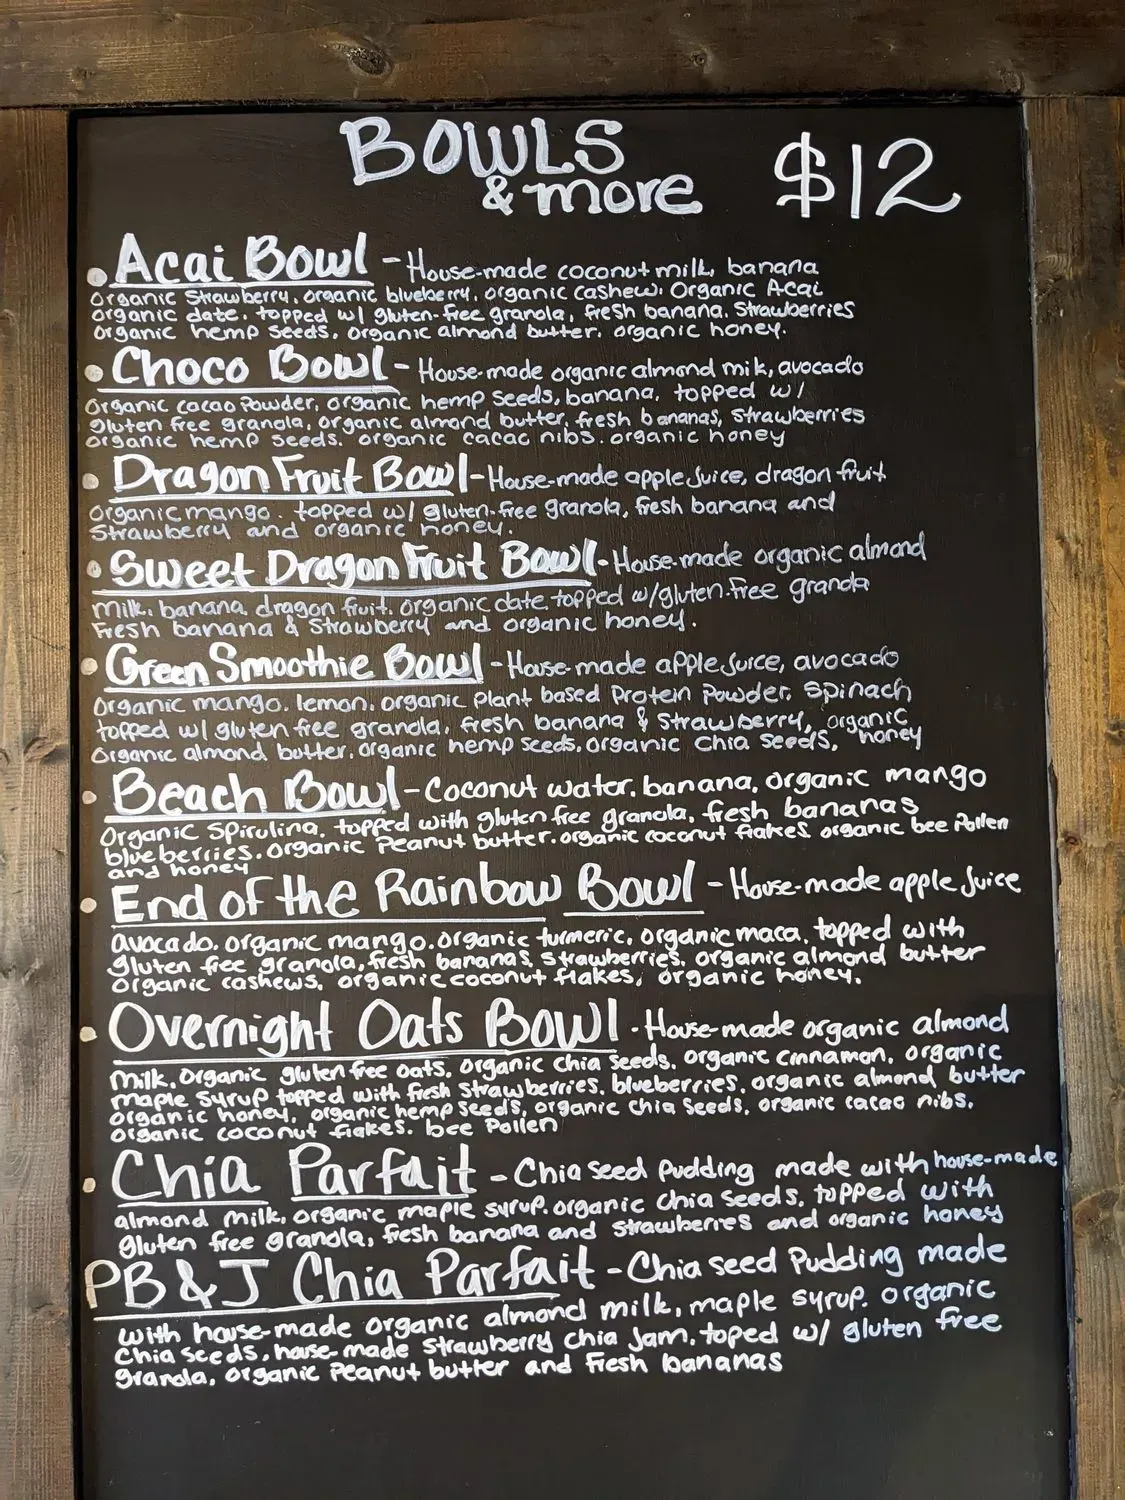 BOWLS
& more $12
Acai Bowl - House-made coconut milk, banana
Organic Strawberry, organic blueberry, organic cashew, Organic Acai
organic date, topped w/ gluten-free granola, fresh banana, Strawberries
organic hemp seeds, organic almond butter, organic honey.
Choco Bowl - House-made organic almond milk, avocado
Organic cacao Powder, organic hemp seeds, banana, topped w/
gluten free granola, organic almond butter, fresh bananas, strawberries
organic hemp seeds, organic cacao nibs, organic honey
Dragon Fruit Bowl - House-made apple Juice, dragon fruit
Organic mango. topped w/ gluten-free granola, fresh banana and
Strawberry and organic honey.
Sweet Dragon Fruit Bowl - House-made organic almond
milk, banana, dragon fruit, organic date topped w/gluten-free granola
Fresh banana & Strawberry and organic honey.
Green Smoothie Bowl - House-made apple Juice, avocado
Organic mango, lemon, organic plant based Protein Powder, Spinach
topped w/ gluten-free granola, fresh banana & strawberry, organic
Organic almond butter, organic hemp seeds, organic chia seeds, honey
Beach Bowl - Coconut water, banana, organic mango
Organic Spirulina, topped with gluten free granola, fresh bananas
blueberries, organic Peanut butter, organic coconut flakes organic bee Pollen
and honey
End of the Rainbow Bowl - House-made apple Juice
avocado, organic mango, organic turmeric, organic maca, topped with
gluten free granola, fresh bananas, strawberries, organic almond butter
organic cashews, organic coconut flakes, organic honey.
Overnight Oats Bowl - House-made organic almond
milk, organic gluten free oats, organic chia seeds, organic cinnamon, organic
maple syrup topped with fresh strawberries, blueberries, organic almond butter
organic honey, organic hemp seeds, organic chia seeds, organic cacao nibs,
organic coconut flakes, bee Pollen
Chia Parfait - Chia seed pudding made with house-made
almond milk, organic maple syrup, organic chia seeds, topped with
gluten free granola, fresh banana and strawberries and organic honey
PB & J Chia Parfait - Chia seed Pudding made
with house-made organic almond milk, maple syrup, organic
Chia seeds, house-made strawberry chia Jam, toped w/ gluten free
granola, organic Peanut butter and Fresh bananas